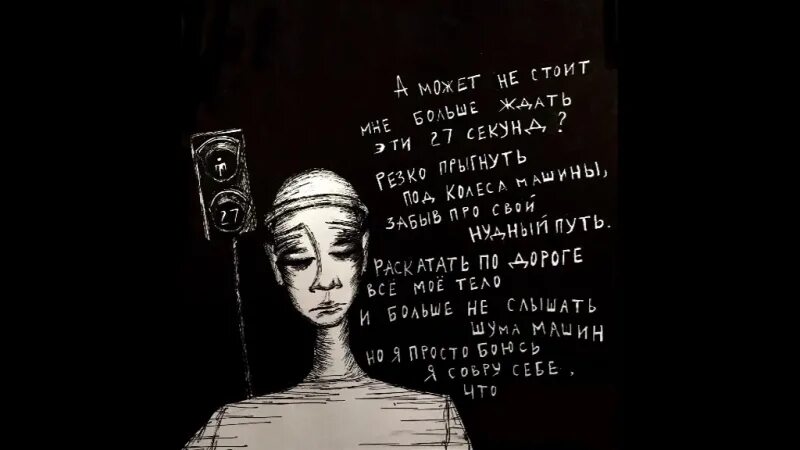 27
А МОЖЕТ НЕ СТОИТ
МНЕ БОЛЬШЕ ЖДАТЬ
ЭТИ 27 СЕКУНД?
РЕЗКО ПРЫГНУТЬ
ПОД КОЛЕСА МАШИНЫ,
ЗАБЫВ ПРО СВОЙ
НУДНЫЙ ПУТЬ.
РАСКАТАТЬ ПО ДОРОГЕ
ВСЁ МОЁ ТЕЛО
И БОЛЬШЕ НЕ СЛЫШАТЬ
ШУМА МАШИН
НО Я ПРОСТО БОЮСЬ
Я СОВРУ СЕБЕ,
ЧТО